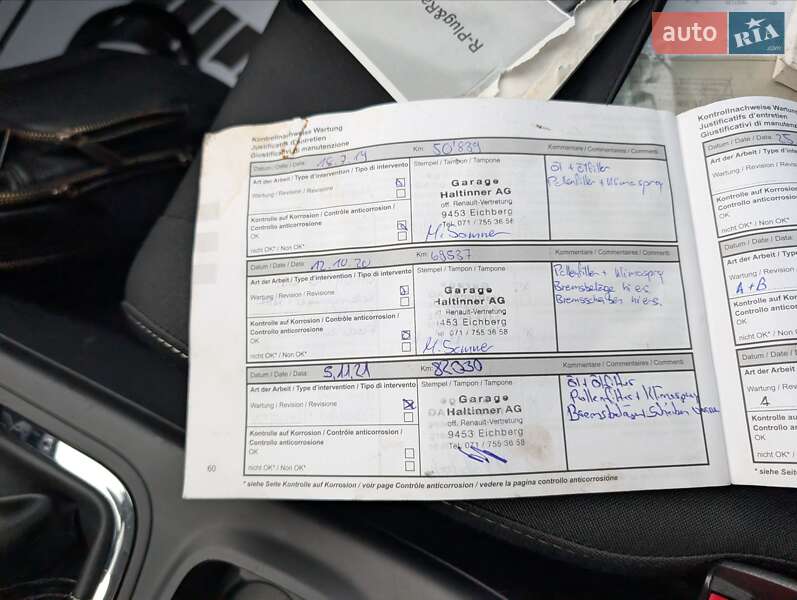 R-Plug&Ra
auto RIA.com
Kontrollnachweise Wartung
Justificatifs d'entretien
Giustificativi di manutenzione
Datum / Date / Data: 18.7.19 Km: 50'839 Kommentare / Commentaires / Commenti
Art der Arbeit / Type d'intervention / Tipo di intervento
Wartung / Revision / Revisione
Stempel / Tampon / Tampone
Garage
Haltinner AG
off. Renault-Vertretung
9453 Eichberg
Tel. 071 / 755 36 58
Öl + Ölfilter
Pollenfilter + Klimaspray
Kontrolle auf Korrosion / Contrôle anticorrosion /
Controllo anticorrosione
OK
nicht OK* / Non OK*
Datum / Date / Data: 12.10.20 Km: 69537 Kommentare / Commentaires / Commenti
Art der Arbeit / Type d'intervention / Tipo di intervento
Wartung / Revision / Revisione
Stempel / Tampon / Tampone
Garage
Haltinner AG
Renault-Vertretung
9453 Eichberg
Tel. 071 / 755 36 58
Pollenfilter + Klimaspray
Bremsbeläge hies
Bremsscheiben hies.
Kontrolle auf Korrosion / Contrôle anticorrosion /
Controllo anticorrosione
OK
nicht OK* / Non OK*
Datum / Date / Data: 5.11.21 Km: 82030 Kommentare / Commentaires / Commenti
Art der Arbeit / Type d'intervention / Tipo di intervento
Wartung / Revision / Revisione
Stempel / Tampon / Tampone
Garage
Haltinner AG
off. Renault-Vertretung
9453 Eichberg
Tel. 071 / 755 36 58
Öl + Ölfilter
Pollenfilter + Klimaspray
Kontrolle auf Korrosion / Contrôle anticorrosion /
Controllo anticorrosione
OK
nicht OK* / Non OK*
60
* siehe Seite Kontrolle auf Korrosion / voir page Contrôle anticorrosion / vedere la pagina controllo anticorrosione
Kontrollnachweise Wartung
Justificatifs d'entretien
Giustificativi di manuten
Datum / Date / Data: 25
Art der Arbeit / Type d'in
Wartung / Revision / Re
Kontrolle auf Korrosion
Controllo anticorrosion
OK
nicht OK* / Non OK*
Datum / Date / Data:
Art der Arbeit / Type
Wartung / Revision /
A + B
Kontrolle auf Korro
Controllo anticorro
OK
nicht OK* / Non O
Datum / Date / Da
Art der Arbeit /
Wartung / Revis
4
Kontrolle auf K
Controllo antic
OK
nicht OK* / No
* siehe Seite